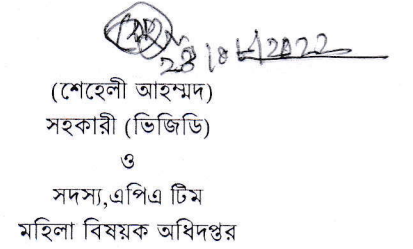 (শেহেলী আহম্মদ)
সহকারী (ভিজিডি)
ও
সদস্য,এপিএ টিম
মহিলা বিষয়ক অধিদপ্তর